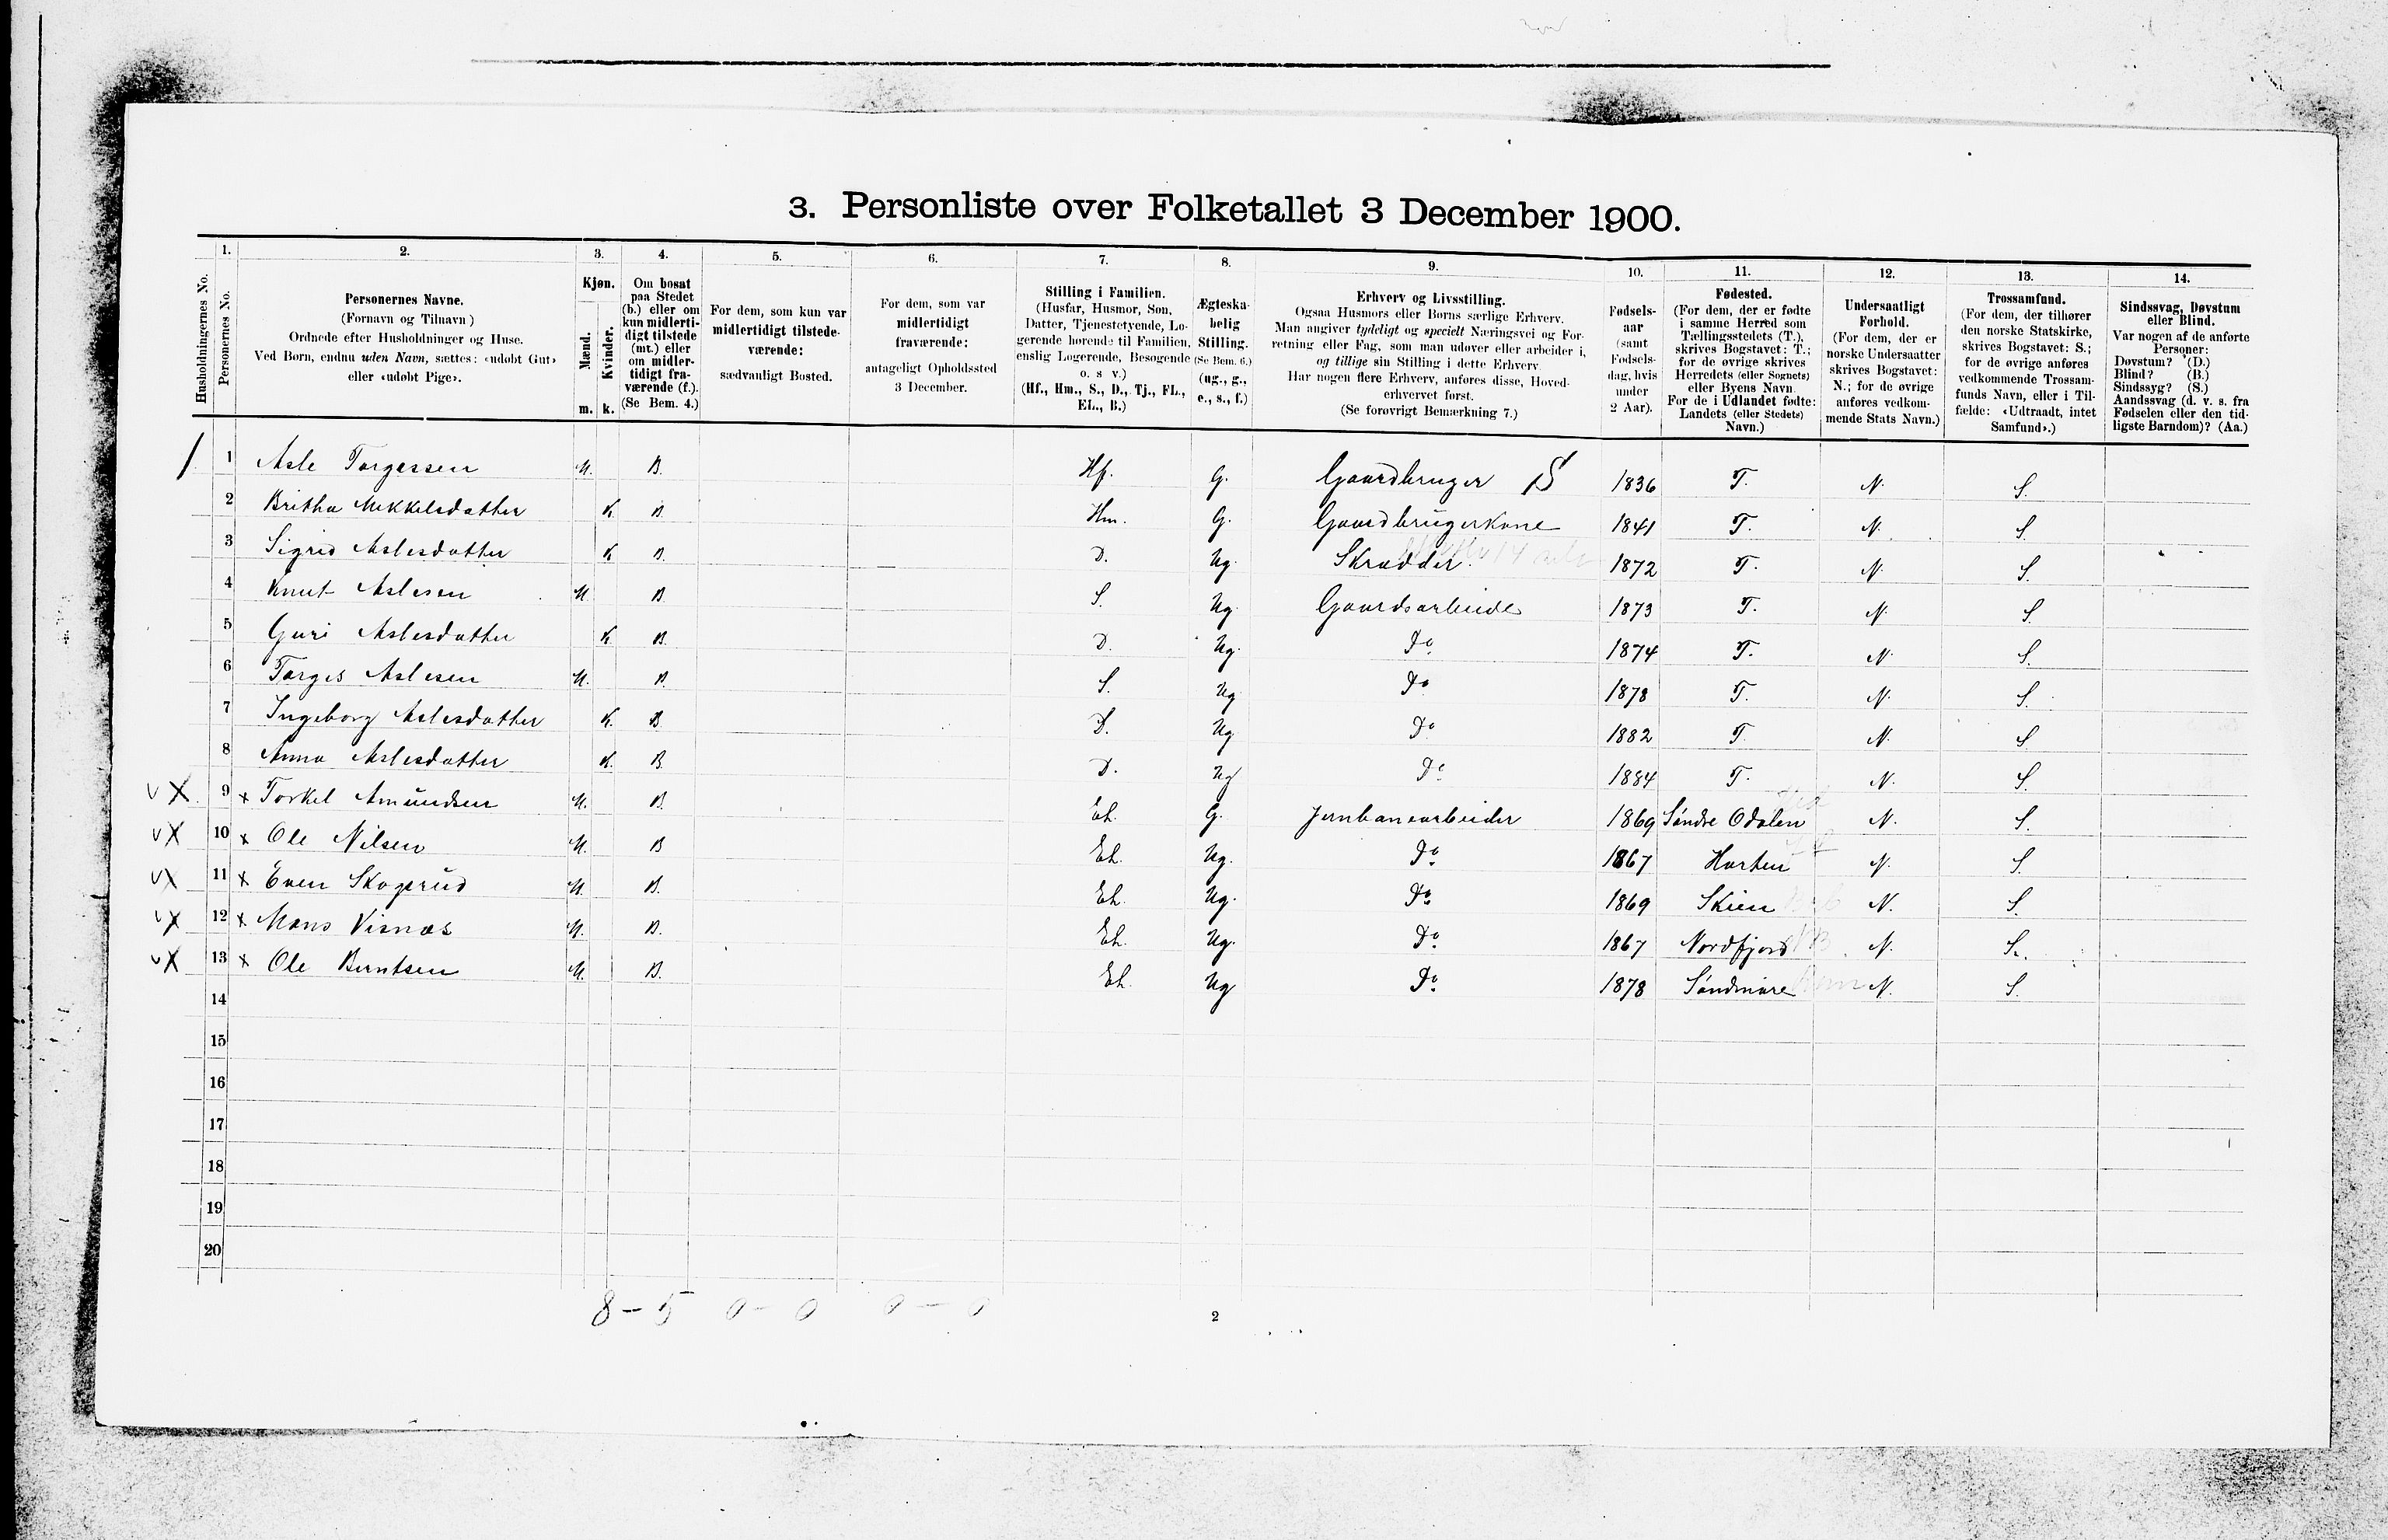 3. Personliste over Folketallet 3 December 1900.
Husholdningernes No.
1.
Personernes No.
2.
Personernes Navne.
(Fornavn og Tilnavn)
Ordnede efter Husholdninger og Huse.
Ved Børn, endnu uden Navn, sættes: «udøbt Gut»
eller «udøbt Pige».
3.
Kjøn.
Mænd.
Kvinder.
m. k.
4.
Om bosat
paa Stedet
(b.) eller om
kun midlerti-
digt tilstede
(mt.) eller
om midler-
tidigt fra-
værende (f.).
(Se Bem. 4.)
5.
For dem, som kun var
midlertidigt tilstede-
værende:
sædvanligt Bosted.
6.
For dem, som var
midlertidigt
fraværende:
antageligt Opholdssted
3 December.
7.
Stilling i Familien.
(Husfar, Husmor, Søn,
Datter, Tjenestetyende, Lo-
gerende hørende til Familien,
enslig Logerende, Besøgende
o. s v.)
(Hf., Hm., S., D., Tj., FL.,
EL., B.)
8.
Ægteska-
belig
Stilling.
(Se Bem. 6.)
(ug., g.,
e., s., f.)
9.
Erhverv og Livsstilling.
Ogsaa Husmors eller Børns særlige Erhverv.
Man angiver tydeligt og specielt Næringsvei og For-
retning eller Fag, som man udøver eller arbeider i,
og tillige sin Stilling i dette Erhverv.
Har nogen flere Erhverv, anføres disse, Hoved-
erhvervet først.
(Se forøvrigt Bemærkning 7.)
10.
Fødsels-
aar
(samt
Fødsels-
dag, hvis
under
2 Aar).
11.
Fødested.
(For dem, der er fødte
i samme Herred som
Tællingsstedets (T.),
skrives Bogstavet: T.;
for de øvrige skrives
Herredets (eller Sognets)
eller Byens Navn
For de i Udlandet fødte:
Landets (eller Stedets)
Navn.)
12.
Undersaatligt
Forhold.
(For dem, der er
norske Undersaatter
skrives Bogstavet:
N.; for de øvrige
anføres vedkom-
mende Stats Navn.)
13.
Trossamfund.
(For dem, der tilhører
den norske Statskirke,
skrives Bogstavet: S.;
for de øvrige anføres
vedkommende Trossam-
funds Navn, eller i Til-
fælde: «Udtraadt, intet
Samfund».)
14.
Sindssvag, Døvstum
eller Blind.
Var nogen af de anførte
Personer:
Døvstum? (D.)
Blind? (B.)
Sindssyg? (S.)
Aandssvag (d. v. s. fra
Fødselen eller den tid-
ligste Barndom)? (Aa.)
1 Asle Torgersen M. B. Hf. G. Gaardbruger S 1836 T. N. S.
2 Britha Mekkelsdatter K. B. Hm. G. Gaardbrugerkone 1841 T. N. S
3 Sigrid Aslesdatter K B. D. Ug. Skrædder. 1872 T. N. S.
4 Knut Aslesen M. B. S. Ug. Gaardsarbeide 1873 T. N. S.
5 Guri Aslesdatter K. B. D. Ug. Do 1874 T. N. S.
6 Torges Aslesen M. B. S. Ug Do 1878 T. N. S.
7 Ingeborg Aslesdatter K. B. D. Ug Do 1882 T N. S
8 Anna Aslesdatter K. B. D. Ug Do 1884 T. N. S.
v X 9 x Torkel Amundsen M. B. El. G. Jernbanearbeider 1869 Søndre Odalen N. S.
v X 10 x Ole Nilsen M. B El. Ug. Do 1867 Horten N. S.
v X 11 x Even Skogsrud M. B. El. Ug. Do 1869 Skien N. S.
v X 12 x Mons Visnæs M. B. El. Ug. Do 1867 Nordfjord N. S.
v X 13 x Ole Berntsen M. B. El. Ug Do 1878 Søndmøre N. S.
14
15
16
17
18
19
20
8 - 5 0 - 0 0 - 0
2